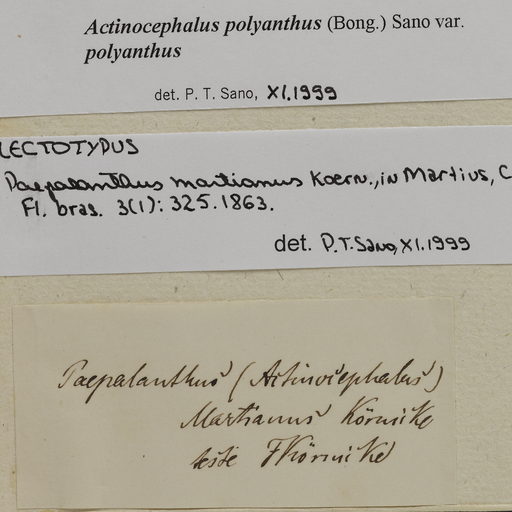 Actinocephalus polyanthus (Bong.) Sano var.
polyanthus
det. P. T. Sano, XI.1999
LECTOTYPUS
Paepalanthus martianus Koern., in Martius, C
Fl. bras. 3(1): 325. 1863.
det. P.T. Sano, XI.1999
Paepalanthus (Actinocephalus)
Martianus Körnicke
teste FKörnicke